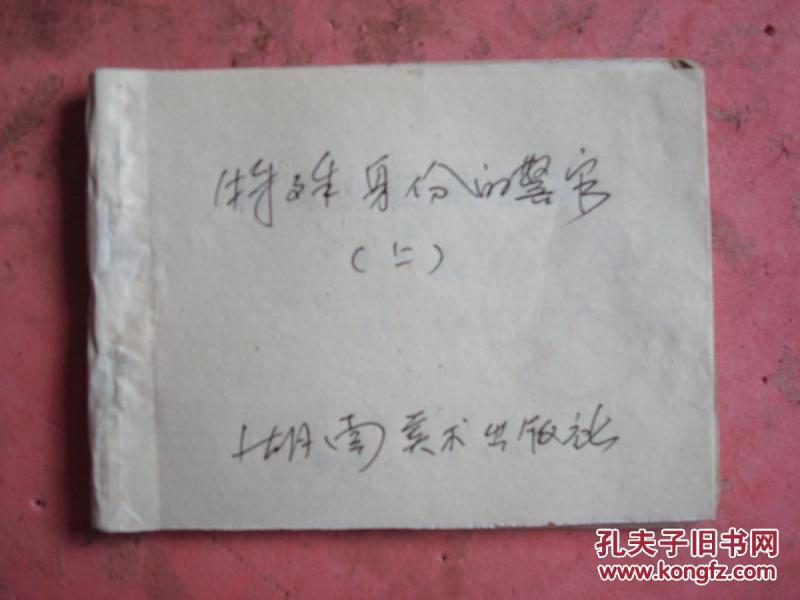 特殊身份的警官
（上）
湖南美术出版社
孔夫子旧书网
www.kongfz.com